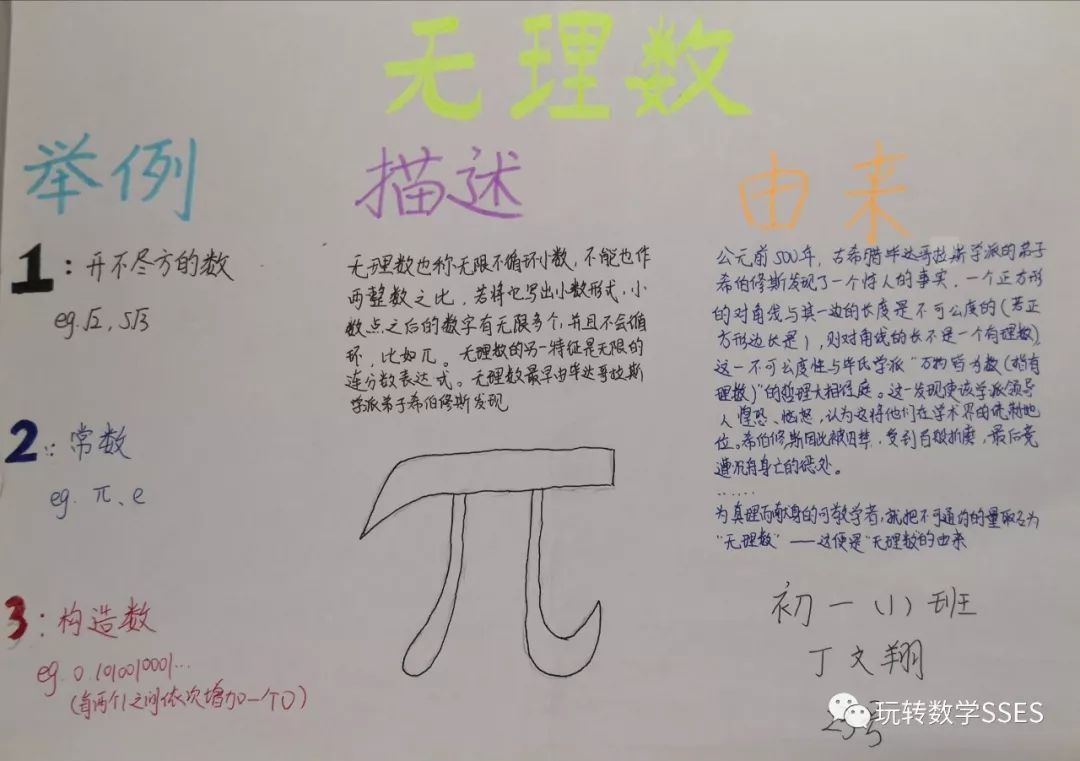 无理数
举例
1:开不尽方的数
eg.√2,5√3
2:常数
eg. π、e
3:构造数
eg. 0.1010010001...
(每两个1之间依次增加一个0)
描述
无理数也称无限不循环小数,不能也作
两整数之比,若将它写出小数形式,小
数点之后的数字有无限多个,并且不会循
环,比如π。无理数的另一特征是无限的
连分数表达式。无理数最早由毕达哥拉斯
学派弟子希伯修斯发现
由来
公元前500年,古希腊毕达哥拉斯学派的弟子
希伯修斯发现了一个惊人的事实,一个正方形
的对角线与其一边的长度是不可公度的(若正
方形边长是1,则对角线的长不是一个有理数)
这一不可公度性与毕氏学派“万物皆为数(指有
理数)”的哲理大相径庭。这一发现使该学派领导
人惶恐、恼怒,认为这将他们在学术界的统制地
位。希伯修斯因此被囚禁,受到百般折磨,最后竟
遭沉舟身亡的惩处。
......
为真理而献身的可敬学者,就把不可通约的量取名为
“无理数”——这便是“无理数”的由来
初一(1)班
丁文翔
玩转数学SSES